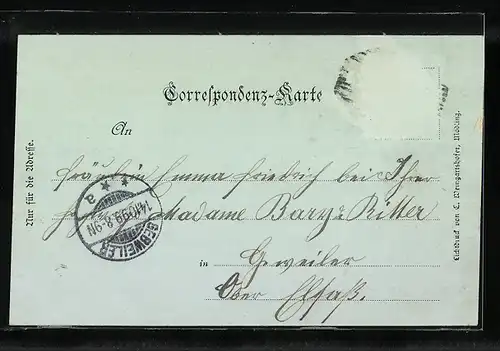 Correspondenz-Karte
An
Fräulein Emma Friedrich bei Ihrer
Madame Bary & Ritter
in Geweiler
Ober Elsaß.
Nur für die Adresse.
GEBWEILER
a
14.10.99.8-9N
Lichtdruck von C. Wrmgarnshofer, Mödling.